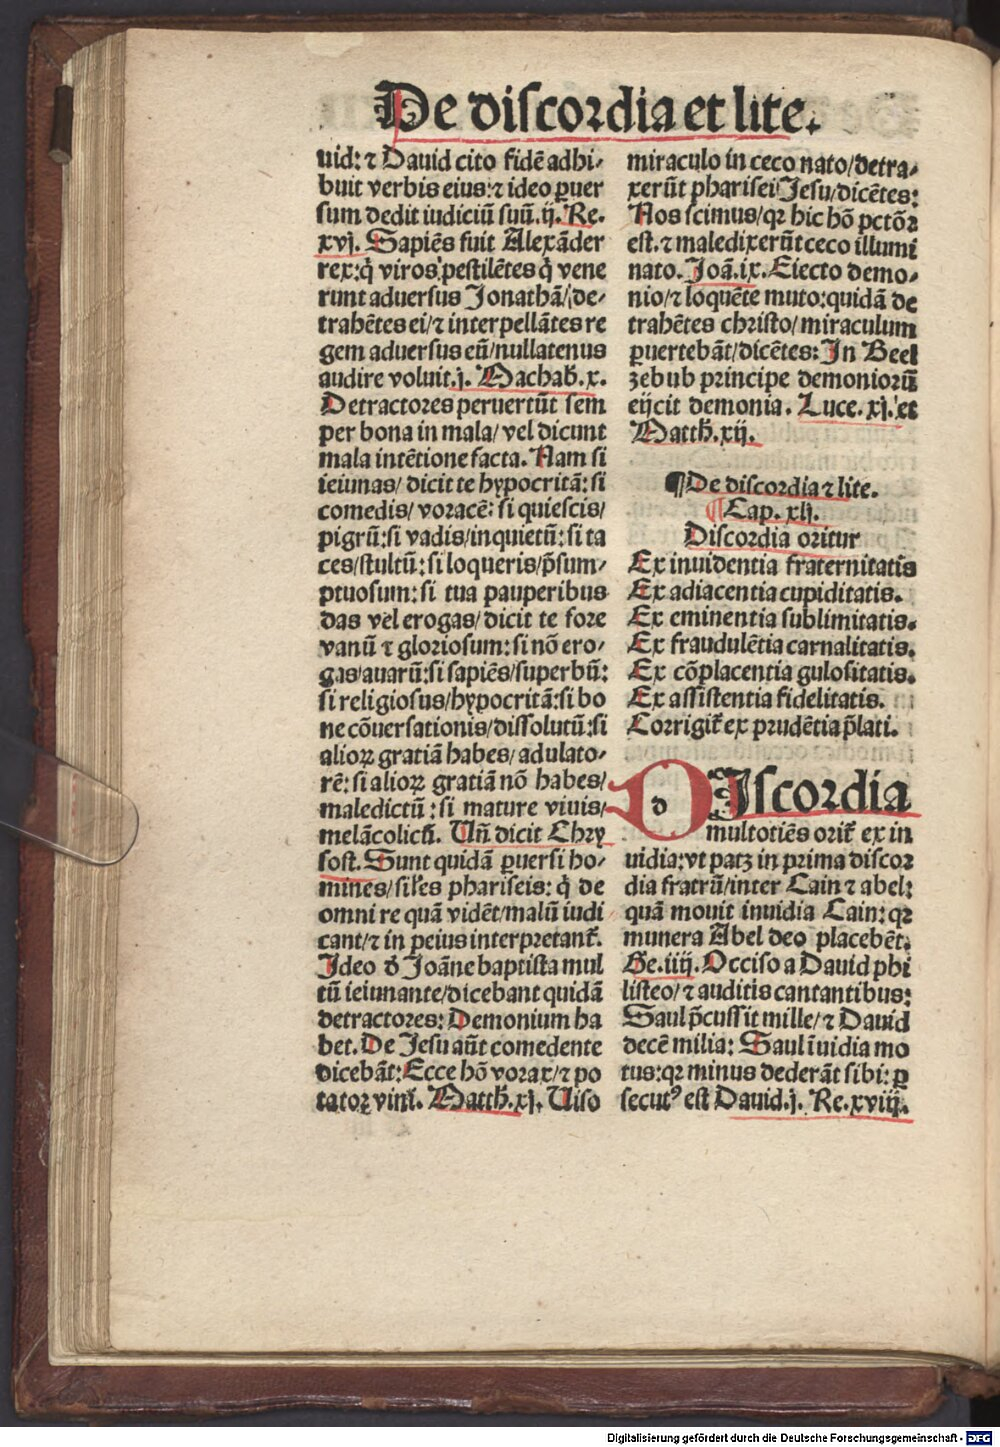 De discordia et lite.
uid: ⁊ Dauid cito fidē adhi⸗
buit verbis eius: ⁊ ideo ꝑuer
sum dedit iudiciū suū. ij. Re.
xvj. Sapiēs fuit Alexāder
rex: q̇ viros pestilētes q̇ vene
runt aduersus Jonathā/ de⸗
trahētes ei/ ⁊ interpellātes re
gem aduersus eū/ nullatenus
audire voluit. j. Machab̄. x.
Detractores peruertūt sem
per bona in mala/ vel dicunt
mala intētione facta. Nam si
ieiunas/ dicit te hypocritā: si
comedis/ voracē: si quiescis/
pigrū: si vadis/ inquietū: si ta
ces/ stultū: si loqueris/ p̄sum⸗
ptuosum: si tua pauperibus
das vel erogas/ dicit te fore
vanū ⁊ gloriosum: si nō ero⸗
gas/ auarū: si sapiēs/ superbū:
si religiosus/ hypocritā: si bo
ne cōuersationis/ dissolutū: si
alioꝝ gratiā habes/ adulato⸗
rē: si alioꝝ gratiā nō habes/
maledictū: si mature viuis/
melācolicū. Un̄ dicit Chry
sost. Sunt quidā ꝑuersi ho⸗
mines/ sil̄es phariseis: q̇ de
omni re quā vidēt/ malū iudi
cant/ ⁊ in peius interpretant̄.
Ideo d̄ Joāne baptista mul
tū ieiunante/ dicebant quidā
detractores: Demonium ha
bet. De Jesu aūt comedente
dicebāt: Ecce hō vorax/ ⁊ po
tatoꝛ vini. Matth̄. xj. Uiso
miraculo in ceco nato/ detra⸗
xerūt pharisei Jesu/ dicētes:
Nos scimus/ qꝛ hic hō pctōꝛ
est. ⁊ maledixerūt ceco illumi
nato. Joā. ix. Eiecto demo⸗
nio/ ⁊ loquēte muto: quidā de
trahētes christo/ miraculum
ꝑuertebāt/ dicētes: In Beel
zebub principe demoniorū
eijcit demonia. Luce. xj. et
Matth̄. xij.
¶De discordia ⁊ lite.
¶Cap. xlj.
Discordia oritur
Ex inuidentia fraternitatis
Ex adiacentia cupiditatis.
Ex eminentia sublimitatis.
Ex fraudulētia carnalitatis.
Ex cōplacentia gulositatis.
Ex assistentia fidelitatis.
Corrigit̄ ex prudētia p̄lati.
DIscordia
multotiēs orit̄ ex in
uidia: vt patꝫ in prima discoꝛ
dia fratrū/ inter Cain ⁊ abel:
quā mouit inuidia Cain: qꝛ
munera Abel deo placebēt.
Ge. iiij. Occiso a Dauid phi
listeo/ ⁊ auditis cantantibus:
Saul ꝑcussit mille/ ⁊ Dauid
decē milia: Saul īuidia mo
tus: qꝛ minus dederāt sibi: ꝑ
secutꝰ est Dauid. j. Re. xviij.
Digitalisierung gefördert durch die Deutsche Forschungsgemeinschaft - DFG